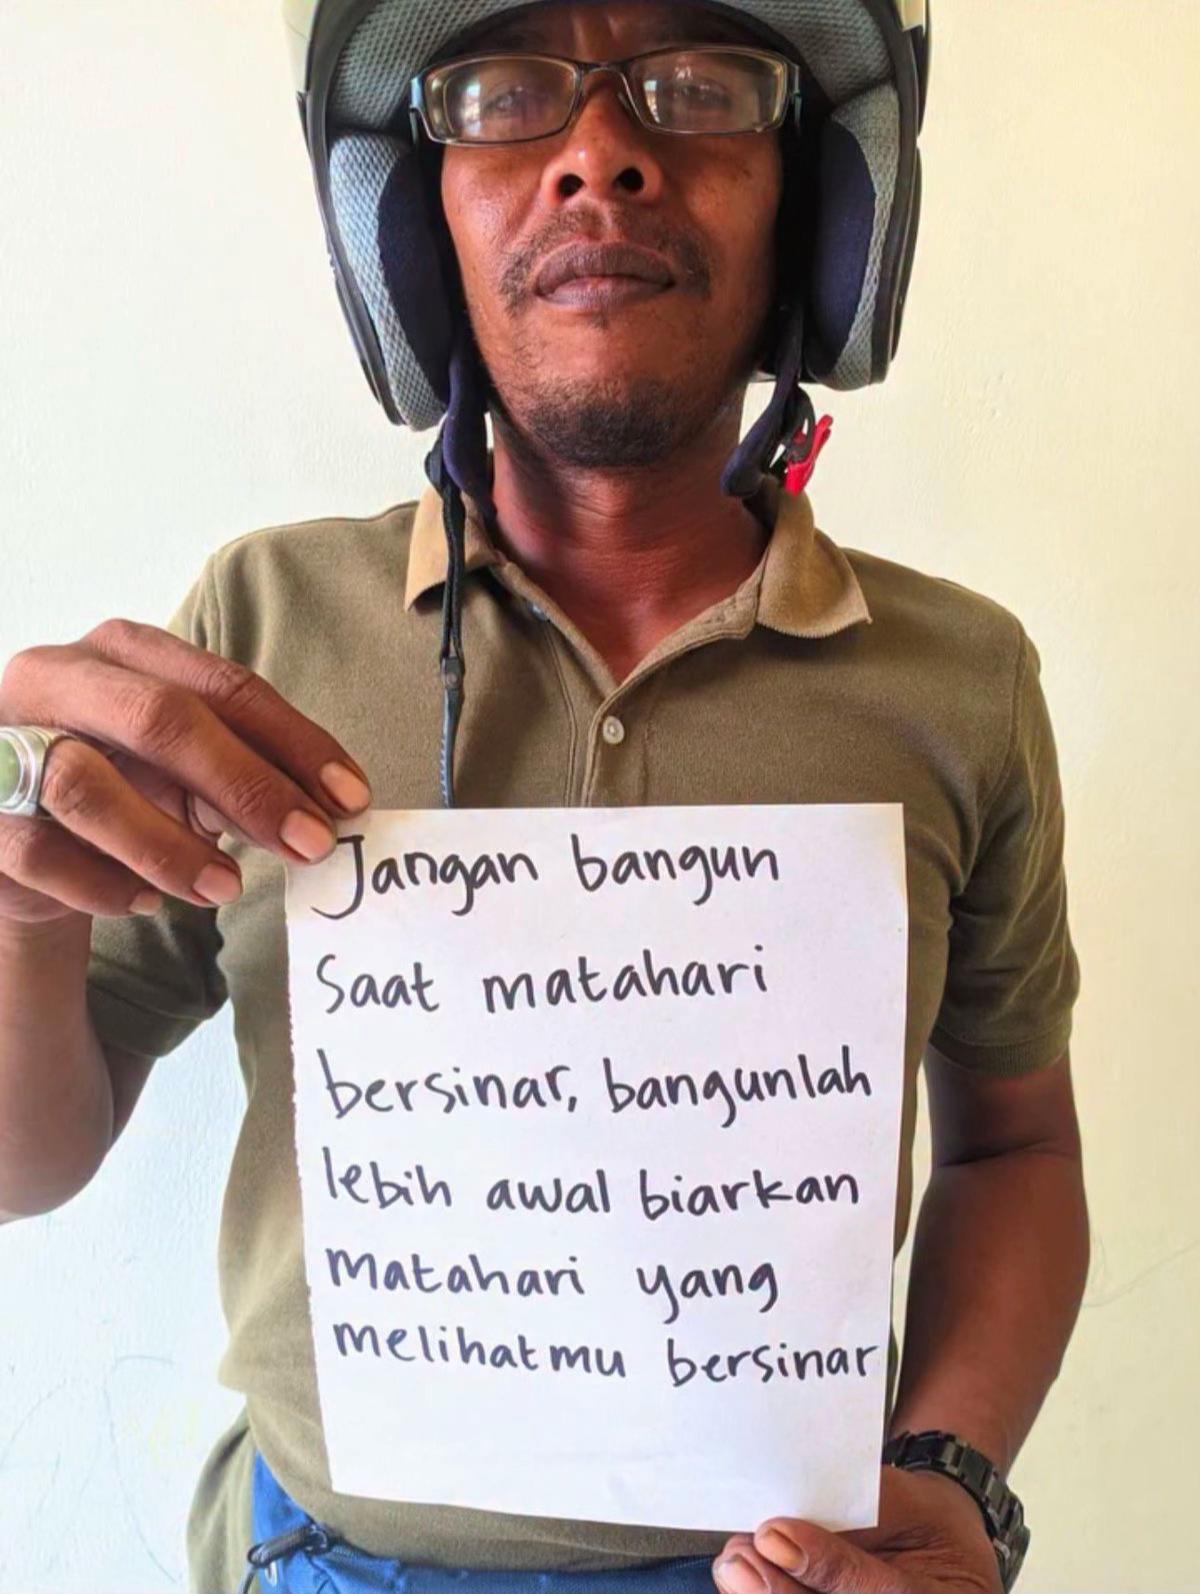 Jangan bangun
Saat matahari
bersinar, bangunlah
lebih awal biarkan
Matahari yang
melihatmu bersinar